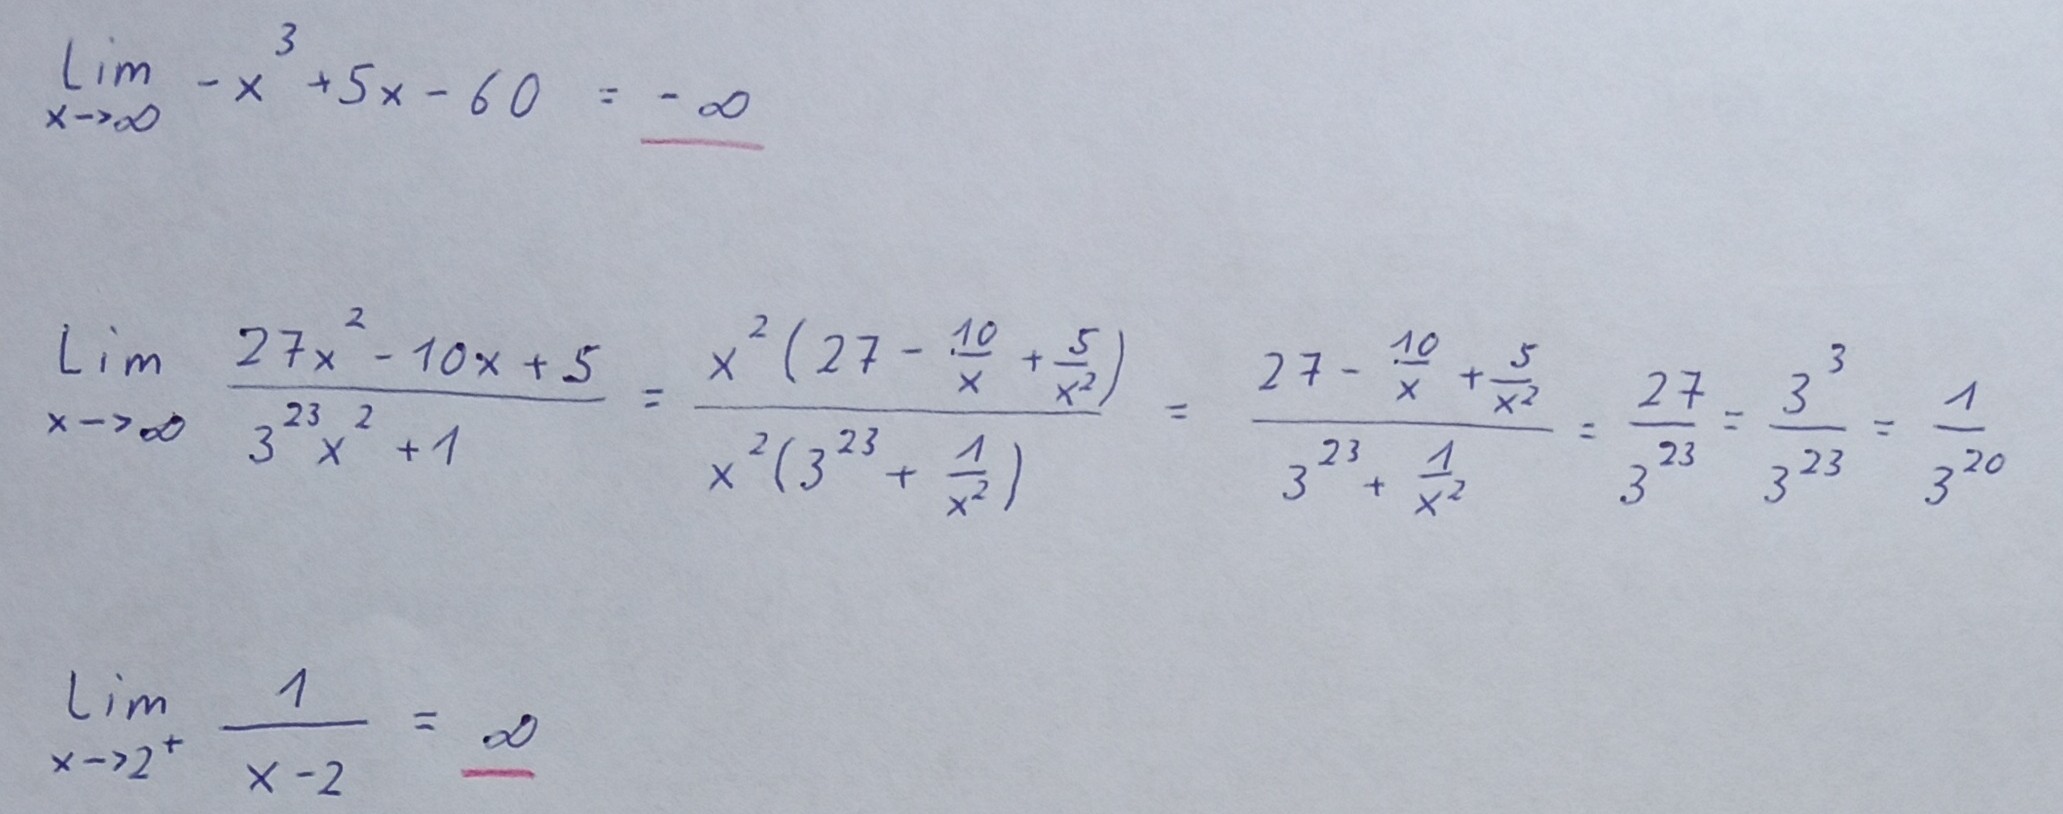 Lim x->∞ -x³ + 5x - 60 = -∞
Lim x->∞ (27x² - 10x + 5)/(3²³x² + 1) = x²(27 - 10/x + 5/x²)/x²(3²³ + 1/x²) = (27 - 10/x + 5/x²)/(3²³ + 1/x²) = 27/3²³ = 3³/3²³ = 1/3²⁰
Lim x->2⁺ 1/(x-2) = ∞